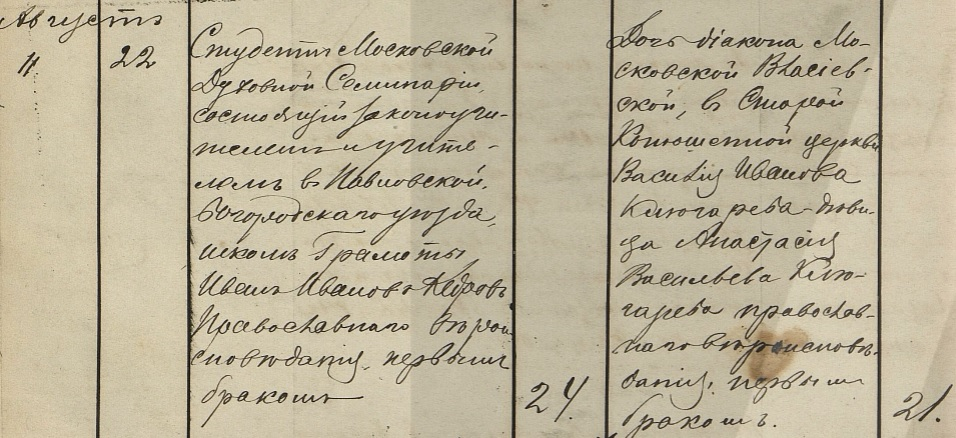 Августъ
11
22
Студентъ Московской
Духовной Семинаріи,
состоящій законоучи-
телемъ и учите-
лемъ въ Павловской,
Богородскаго уѣзда,
школѣ Грамоты
Иванъ Ивановъ Кедровъ
Православнаго вѣрои
сповѣданія, первымъ
бракомъ
24.
Дочь діакона Мо-
сковской Власіев-
ской, въ Старой
Конюшенной церкви
Василія Иванова
Ключарева-дѣви-
ца Анастасія
Васильева Клю-
чарева православ-
наго вѣроисповѣ-
данія, первымъ
бракомъ.
21.